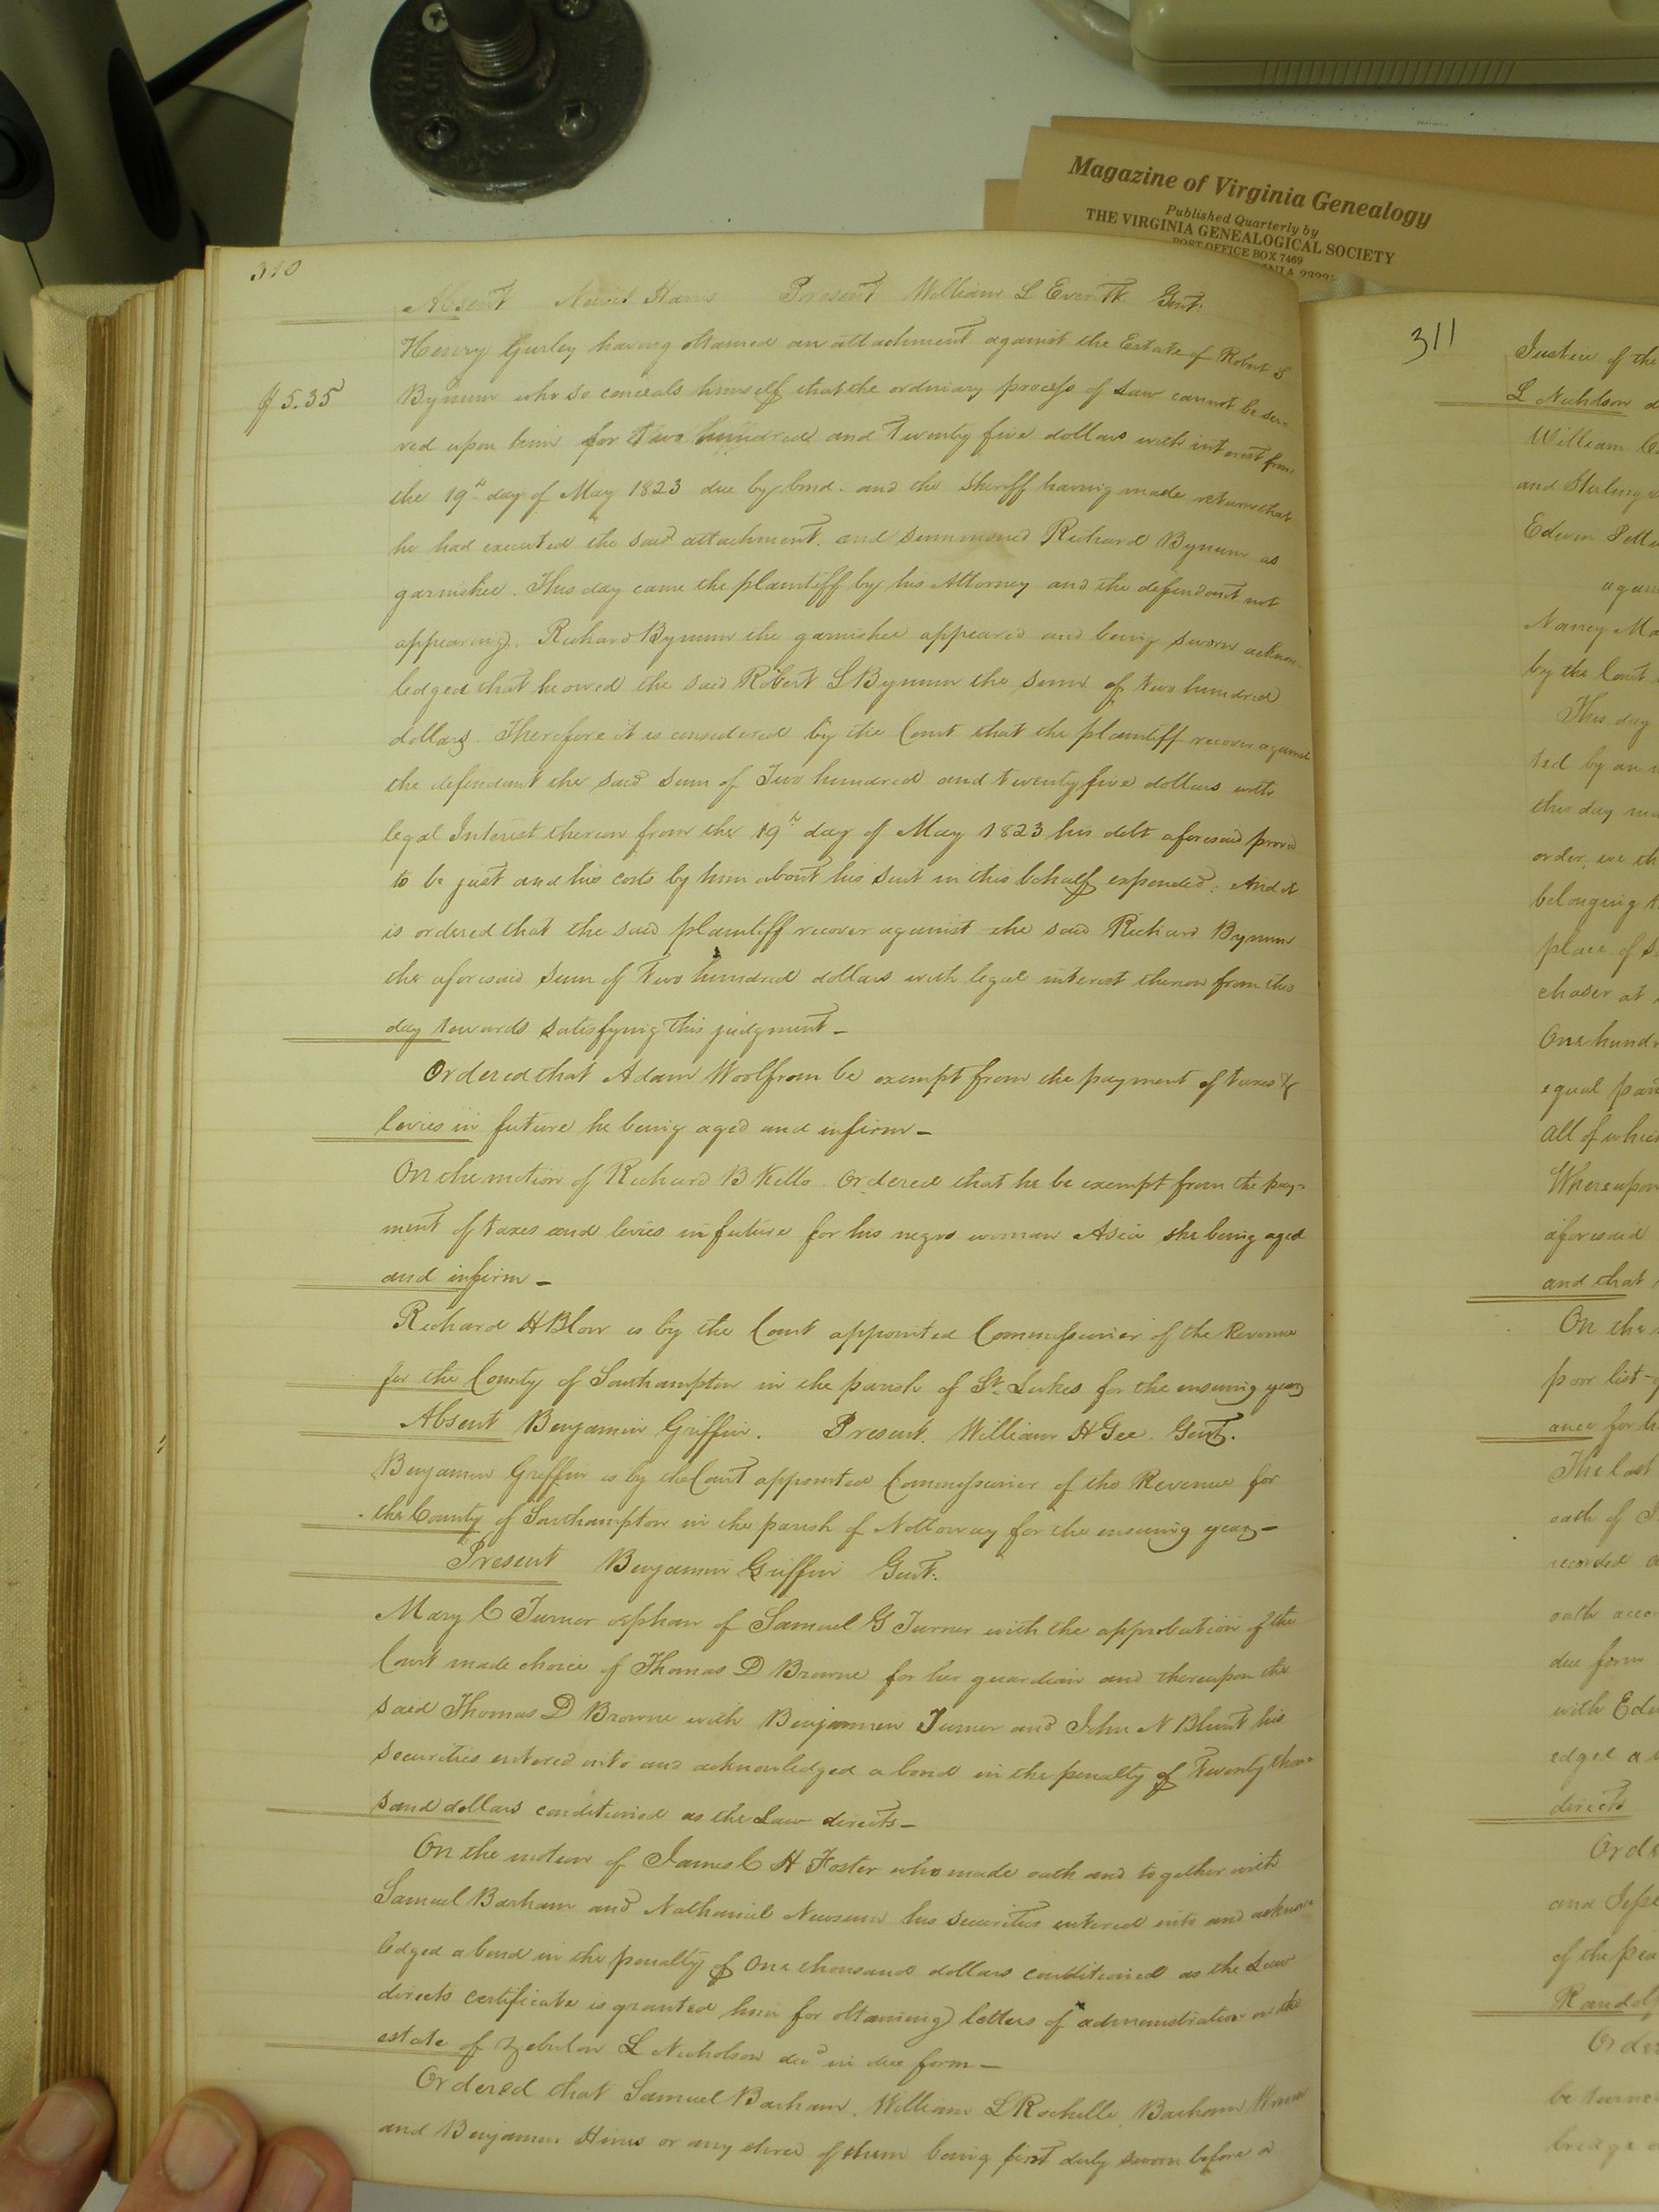 Magazine of Virginia Genealogy
Published Quarterly by
THE VIRGINIA GENEALOGICAL SOCIETY
POST OFFICE BOX 7469
310
Absent Newit Harris Present William L Everitt Gent.
Henry Gurley having obtained an attachment against the Estate of Robert S
$ 5.35
Bynum who so conceals himself that the ordinary process of Law cannot be ser-
ved upon him for Two hundred and Twenty five dollars with interest from
the 19th day of May 1823 due by bond. and the Sheriff having made return that
he had executed the said attachment. and summoned Richard Bynum as
garnishee. This day came the plaintiff by his Attorney and the defendant not
appearing, Richard Bynum the garnishee appeared and being sworn acknow-
ledged that he owed the said Robert S Bynum the sum of two hundred
dollars. Therefore it is considered by the Court that the plaintiff recover against
the defendant the said sum of Two hundred and twenty five dollars with
legal Interest thereon from the 19th day of May 1823 his debt aforesaid proved
to be just and his costs by him about his suit in this behalf expended: And it
is ordered that the said plaintiff recover against the said Richard Bynum
the aforesaid sum of Two hundred dollars with legal interest thereon from this
day towards satisfying this judgment -
Ordered that Adam Woolfrom be exempt from the payment of taxes &
levies in future he being aged and infirm -
On the motion of Richard B Kello Ordered that he be exempt from the pay=
ment of taxes and levies in future for his negro woman Asia she being aged
and infirm -
Richard H Blow is by the Court appointed Commissioner of the Revenue
for the County of Southampton in the parish of St. Lukes for the ensuing year
Absent Benjamin Griffin. Present. William H Gee Gent.
Benjamin Griffin is by the Court appointed Commissioner of the Revenue for
the County of Southampton in the parish of Nottoway for the ensuing year -
Present Benjamin Griffin Gent.
Mary C Turner orphan of Samuel G Turner with the approbation of the
Court made choice of Thomas D Browne for her guardian and thereupon the
said Thomas D Browne with Benjamin Turner and John N Blunt his
securities entered into and acknowledged a bond in the penalty of Twenty thou=
sand dollars conditioned as the Law directs -
On the motion of James C H Foster who made oath and together with
Samuel Barham and Nathaniel Newsum his securities entered into and acknow=
ledged a bond in the penalty of One thousand dollars conditioned as the Law
directs certificate is granted him for obtaining letters of administration on the
estate of Zebulon L Nicholson decd in due form -
Ordered that Samuel Barham, William L Rochelle Barham
and Benjamin Hines or any three of them being first duly sworn before a
311
Justice of the
L Nicholson
William
and Sterling
Edwin
again
Nancy
by the Court
This day
ted by an
this day
order, we
belonging
place of
chaser at
One hund
equal
all of whi
Whereupon
aforesaid
and that
On the
poor list
ance for
The last
oath of
recorded
oath
due form
with
edged a
directs
Orde
and Jesse
of the
Randol
Order
be
bridge